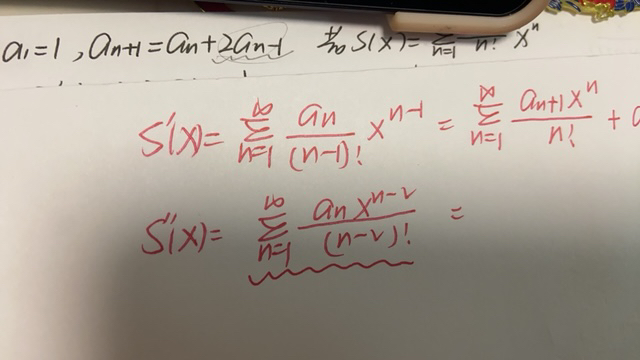 a₁=1, aₙ₊₁=aₙ+2aₙ₋₁ 求 S(x)=∑ₙ₌₁ n! xⁿ
S'(x)=∑ₙ₌₁^∞ aₙ/(n-1)! xⁿ⁻¹ = ∑ₙ₌₁^∞ aₙ₊₁xⁿ/n! + a
S''(x)=∑ₙ₌₁^∞ aₙxⁿ⁻²/(n-2)! =